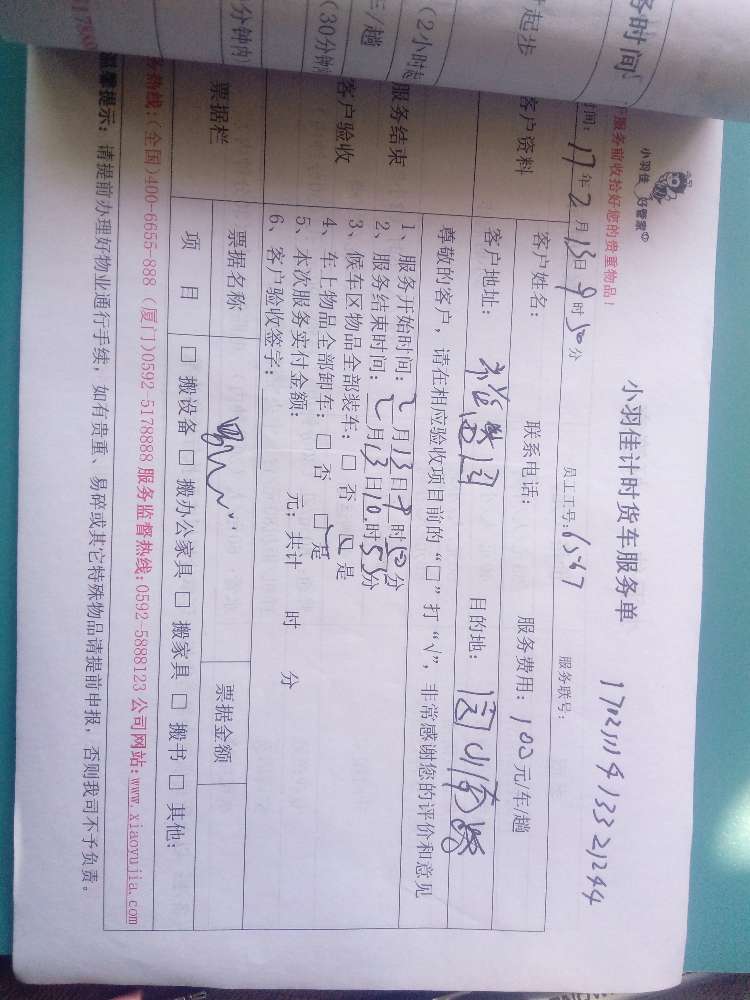 小羽佳 好管家
小羽佳计时货车服务单
服务前收拾好您的贵重物品！
17年2月13日9时50分
员工工号：6567
服务联号：
客户资料
客户姓名：
联系电话：
服务费用：100元/车/趟
客户地址：
目的地：
尊敬的客户，请在相应验收项目前的“□”打“√”，非常感谢您的评价和意见
服务结束
客户验收
1、服务开始时间：2月13日9时50分
2、服务结束时间：2月13日10时55分
3、候车区物品全部装车：□ 否 ☑ 是
4、车上物品全部卸车：□ 否 ☑ 是
5、本次服务实付金额： 元；共计 时 分
6、客户验收签字：
票据栏
票据名称
票据金额
项 目
□ 搬设备 □ 搬办公家具 □ 搬家具 □ 搬书 □ 其他：
热线：(全国)400-6655-888 (厦门)0592-5178888 服务监督热线：0592-5888123 公司网站：www.xiaoyujia.com
温馨提示：请提前办理好物业通行手续，如有贵重、易碎或其它特殊物品请提前申报，否则我司不予负责。
务时间
时起步
(2小时
车/趟
(30分钟
分钟内